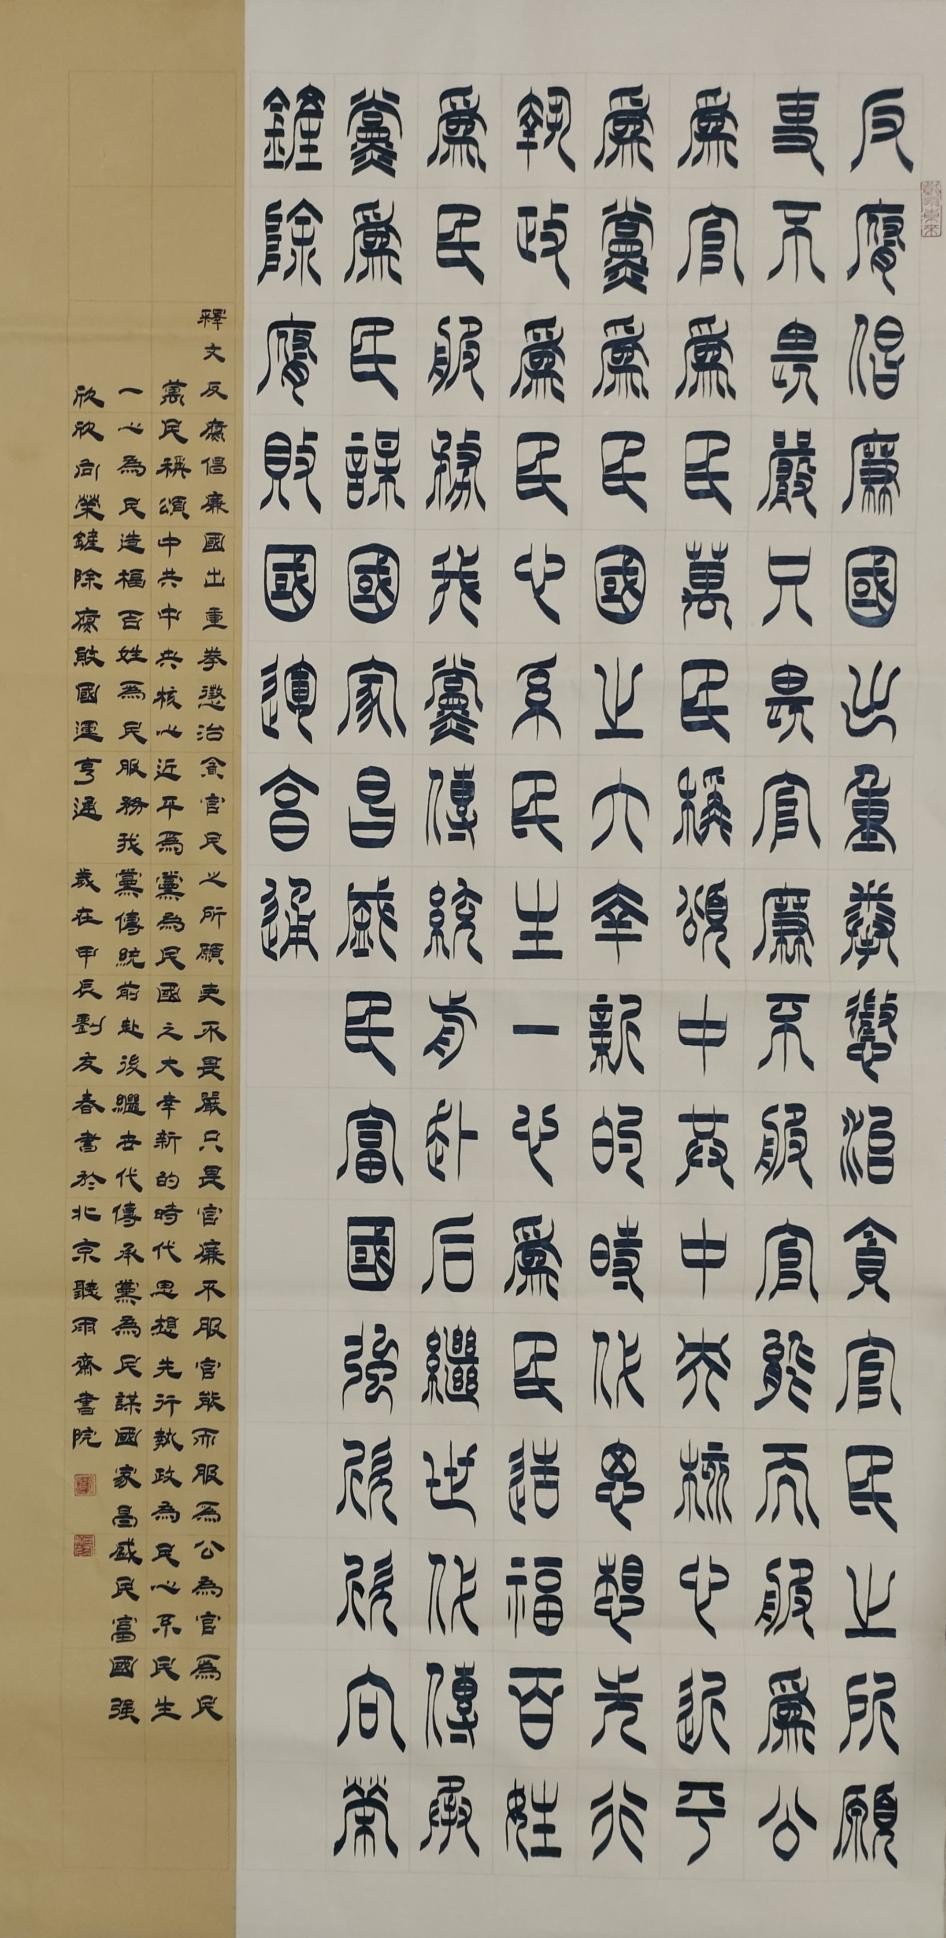 反腐倡廉國出重拳懲治貪官民之所願
吏不畏嚴只畏官廉不服官能而服為公
為官為民萬民稱頌中共中央核心近平
為黨為民國之大幸新的時代思想先行
執政為民心系民生一心為民造福百姓
為民服務我黨傳統前赴后繼世代傳承
黨為民謀國家昌盛民富國强欣欣向榮
鏟除腐敗國運亨通
釋文反腐倡廉國出重拳懲治貪官民之所願吏不畏嚴只畏官廉不服官能而服為公為官為民
萬民稱頌中共中央核心近平為黨為民國之大幸新的時代思想先行執政為民心系民生
一心為民造福百姓為民服務我黨傳統前赴後繼世代傳承黨為民謀國家昌盛民富國强
欣欣向榮鏟除腐敗國運亨通 歲在甲辰劉友春書於北京聽雨齋書院